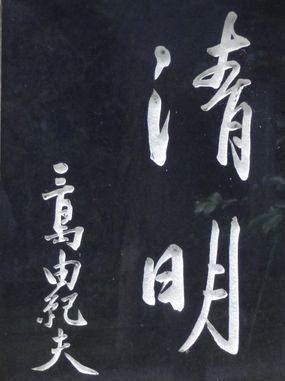 清明
三島由紀夫